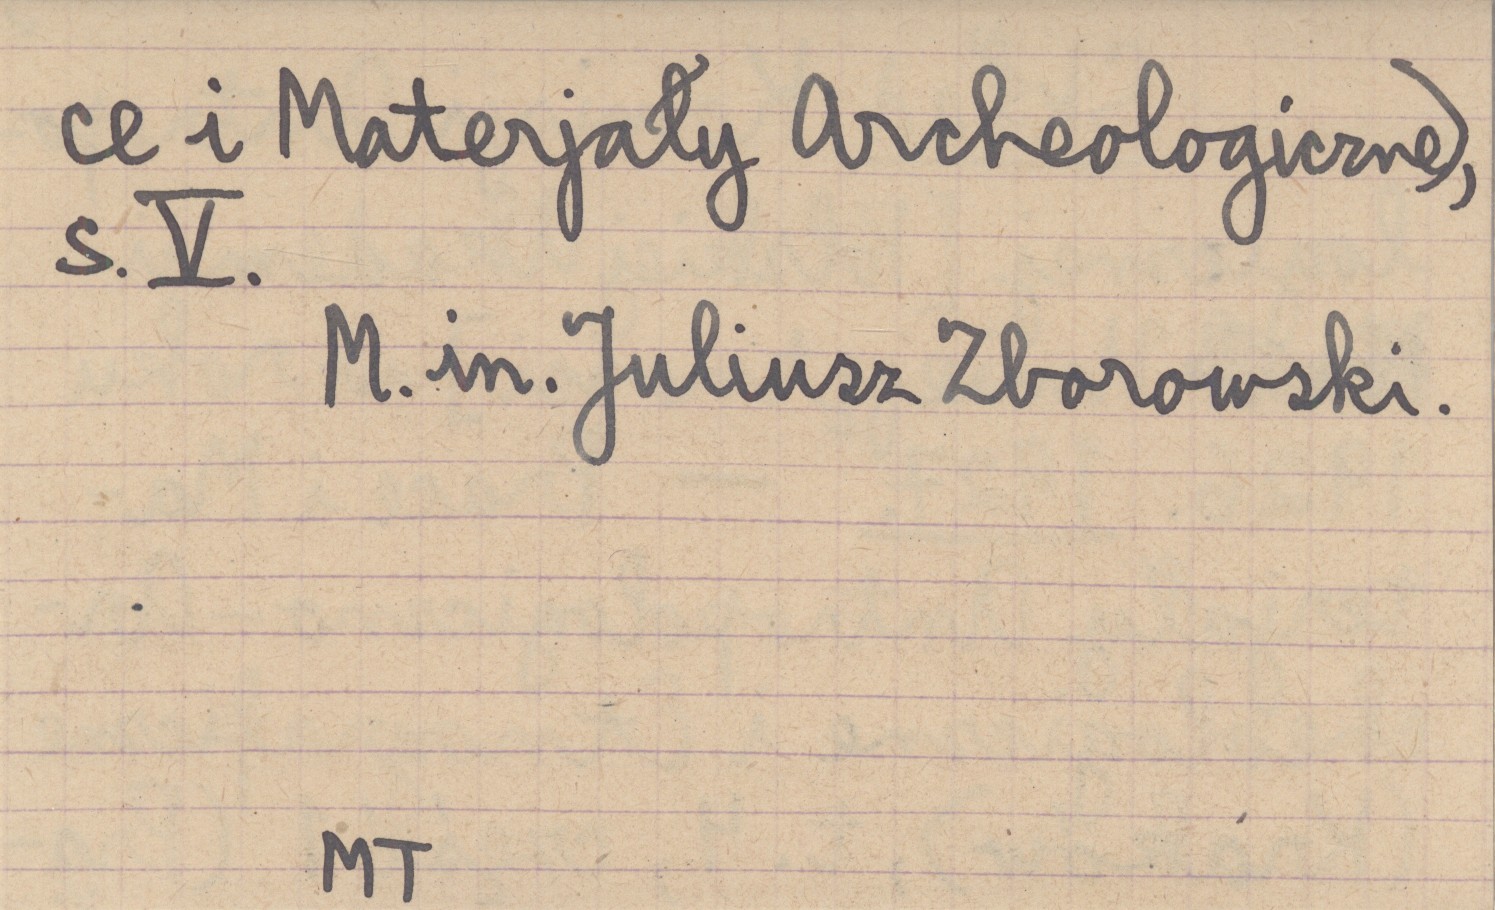 ce i Materjały Archeologiczne),
s. V.
M. in. Juliusz Zborowski.
MT